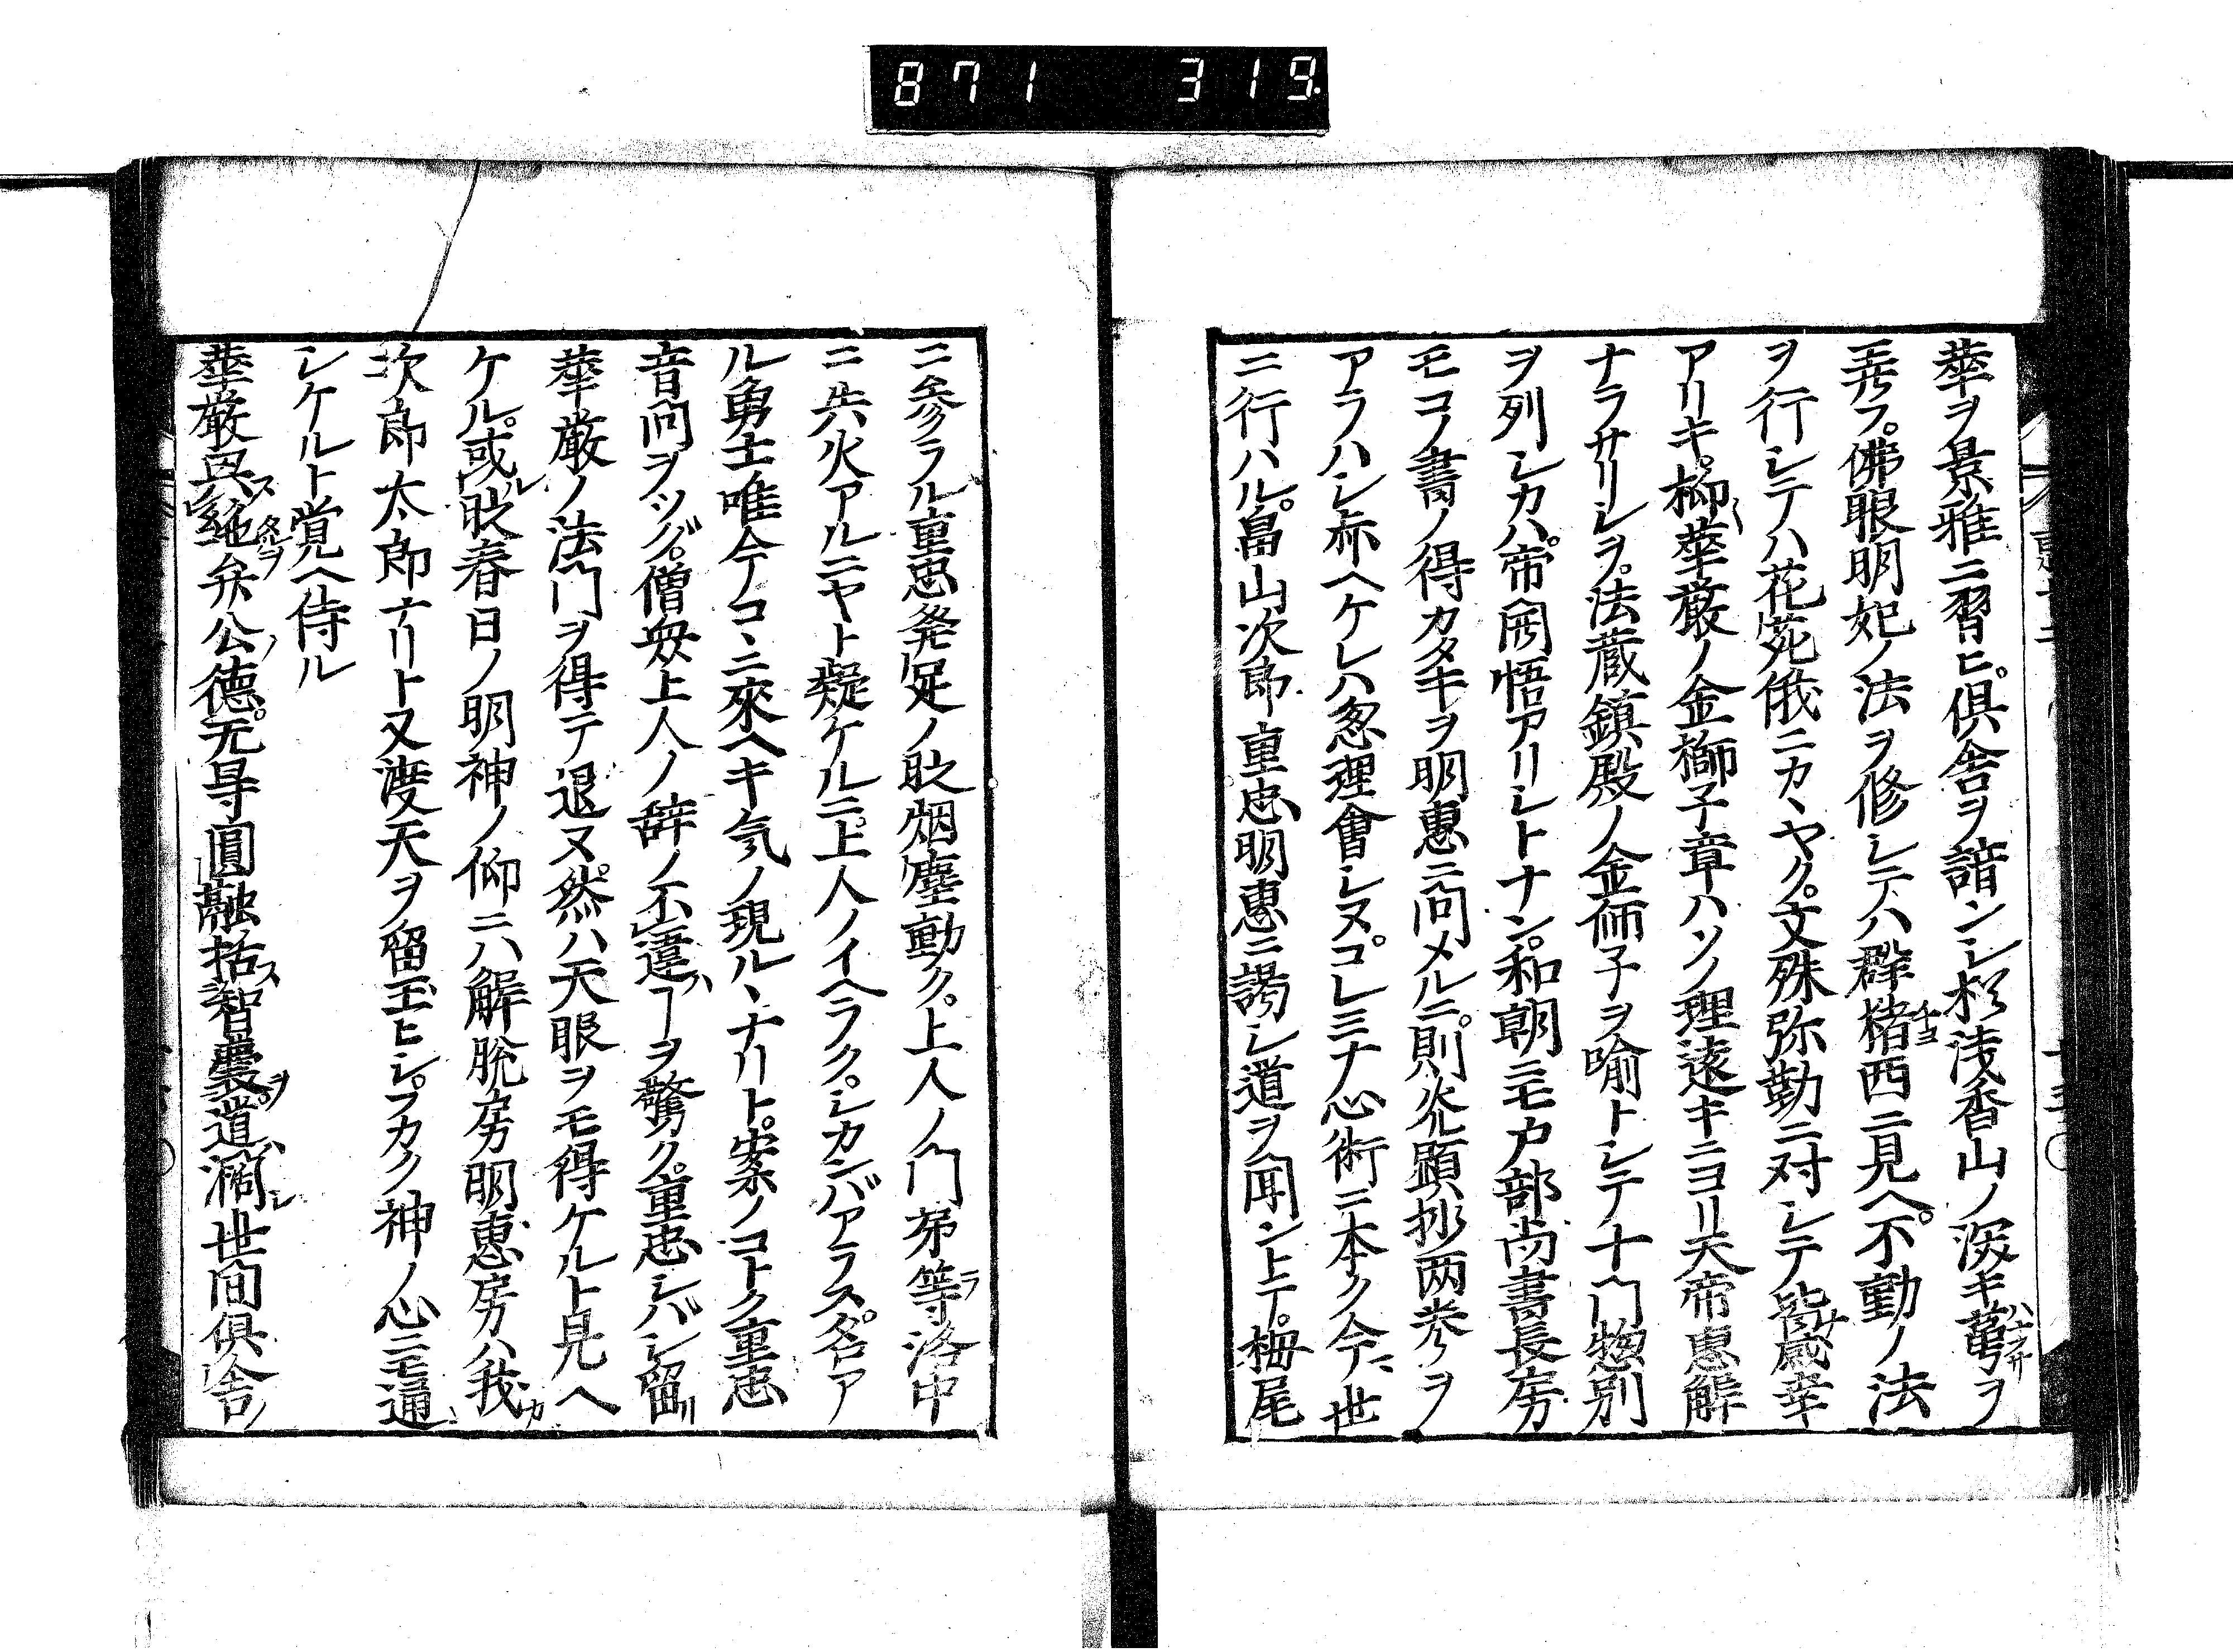 871 319
華ヲ景雅ニ習ヒ。倶舎ヲ諳ンシ杉浅香山ノ深キ萼ヲ
弄フ。佛眼明妃ノ法ヲ修シテハ群猪西ニ見ヘ。不動ノ法
ヲ行シテハ花苑俄ニカヽヤク。文殊弥勤ニ対シテ皆感幸
アリキ。抑華厳ノ金獅子章ハソノ理遠キニヨリ天帝惠解
ナラサリシヲ。法蔵鎮殿ノ金師子ヲ喻トシテ十門惣別
ヲ列シカハ。帝開悟アリシトナン。和朝ニモ戸部尚書長房
モコノ書ノ得カタキヲ明惠ニ問メルニ。則光顕抄两巻ヲ
アラハシ亦ヘケレハ忽理會シヌ。コレミナ心術ニ本ク今ニ世
ニ行ハル。畠山次郎重忠明惠ニ謁シ道ヲ聞ントテ。栂尾
ニ参ラル重忠発足ノ時烟塵動ク。上人ノ門弟等洛中
ニ失火アルニヤト疑ケルニ。上人ノイヘラク。シカンバアラス。名ア
ル勇士唯今コヽニ來ヘキ気ノ現ルヽナリト。案ノコトク重忠
音問ヲツグ。僧衆上人ノ辞ノ不違ヿヲ驚ク。重忠シバシ留
華厳ノ法門ヲ得テ退ヌ。然ハ天眼ヲモ得ケルト見ヘ
ケル。或時春日ノ明神ノ仰ニハ解脱房明惠房ハ我
次郎太郎ナリト又渡天ヲ留玉ヒシ。フカク神ノ心ニモ通
シケルト覚ヘ侍ル
華厳與絶弁公德。无㝵圓融括智嚢。道濶世間倶舎